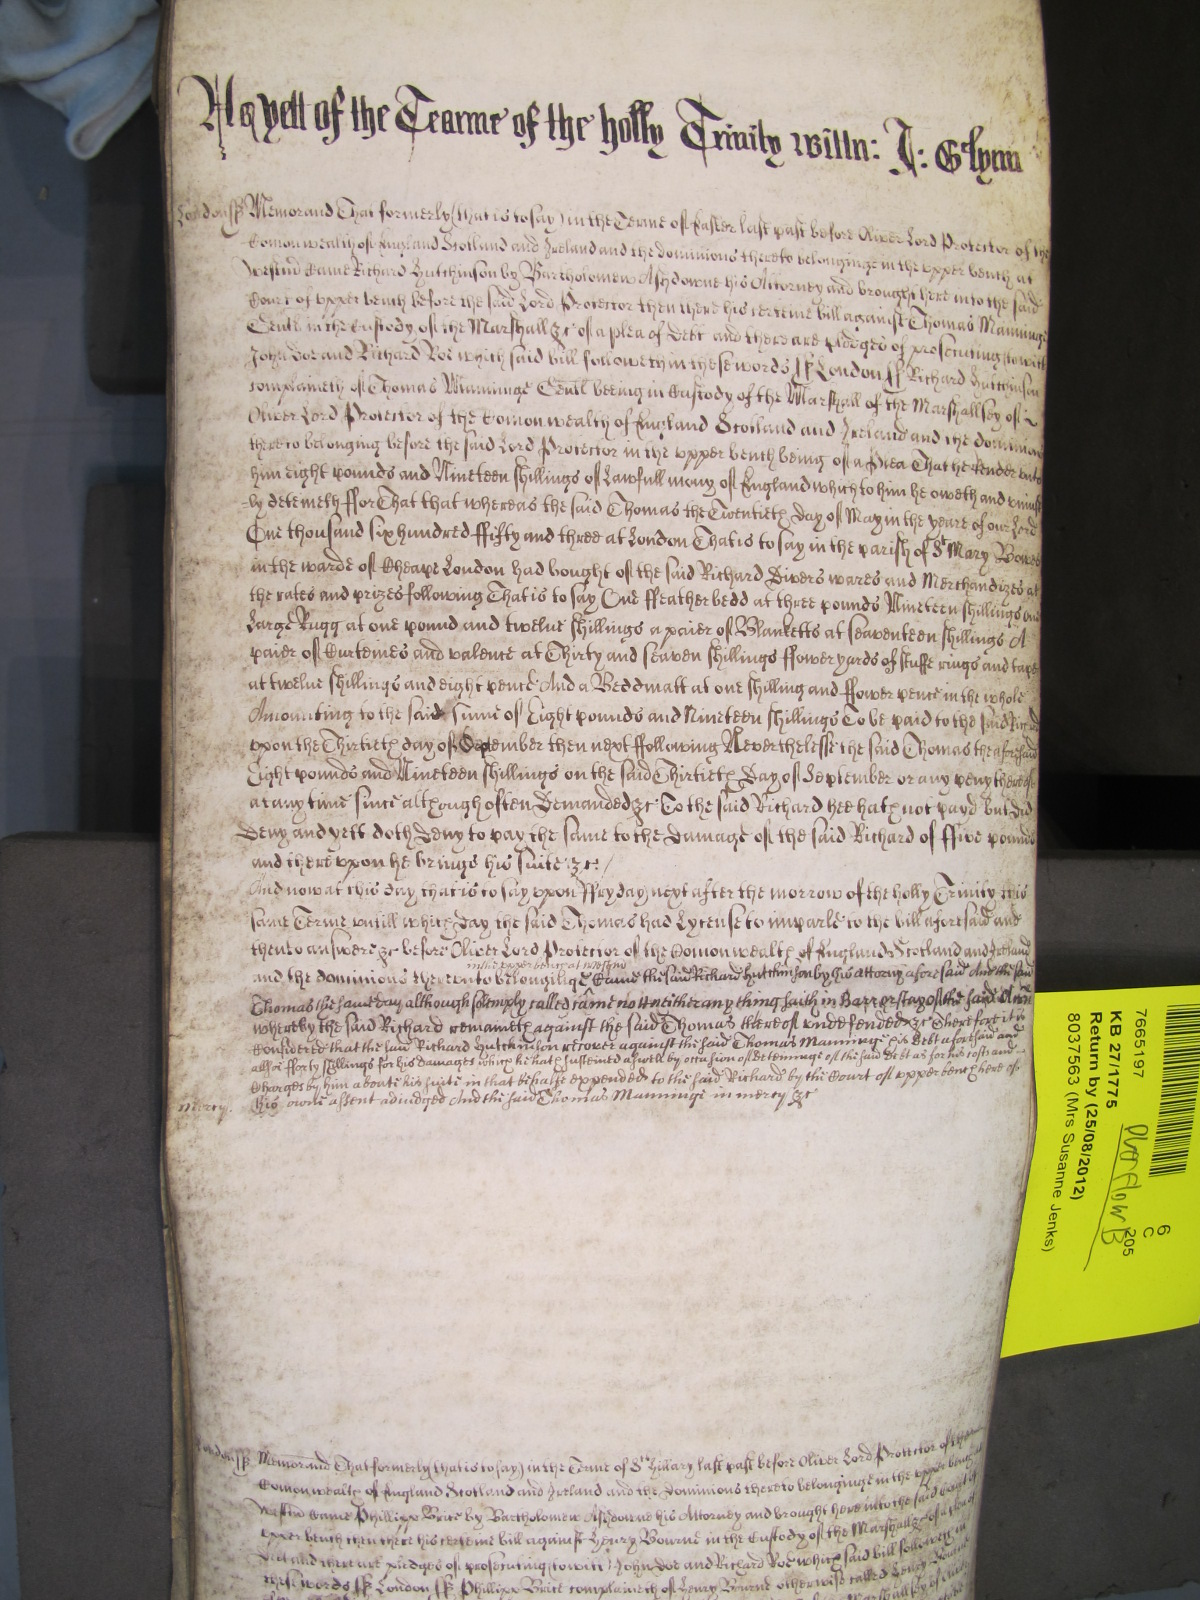 As yett of the Tearme of the holly Trinity willm: J: Glynn
London ss Memorand That formerly (that is to say) in the Terme of Easter last past before Oliver Lord Protector of the
Comonwealth of England Scotland and Ireland and the dominions thereto belonginge in the upper bench at
Westmr Came Richard Hutchinson by Bartholomew Ashdowne his Attorney and brought here into the said
Court of upper bench before the said Lord Protector then there his certeine bill against Thomas Manninge
Gentl in the Custody of the Marshall &c of a plea of Debt and there are pledges of prosecuting towitt
John Doe and Richard Roe which said bill followeth in these words ss London ss Richard Hutchinson
complaineth of Thomas Manninge Gentl beeing in Custody of the Marshall of the Marshallsey of
Oliver Lord Protector of the Comonwealth of England Scotland and Ireland and the dominions
thereto belonging before the said Lord Protector in the upper bench being of a Plea That he Render unto
him eight pounds and Nineteen shillings of Lawfull mony of England which to him he oweth and uniust
-ly deteineth ffor That that whereas the said Thomas the Twentieth Day of May in the yeare of our Lord
One thousand six hundred ffifty and three at London That is to say in the parish of St Mary Bowe
in the warde of Cheape London had bought of the said Richard Divers wares and Merchandizes at
the rates and prizes following That is to say One ffeatherbedd at three pounds Nineteen shillings one
Large Rugg at one pound and twelve shillings a paier of Blanketts at seaventeen shillings A
paier of Curteines and valence at Thirty and seaven shillings ffower yards of stuffe rings and tape
at twelve shillings and eight pence And a Beddmatt at one shilling and ffower pence in the whole
Amounting to the said summe of Eight pounds and Nineteen shillings To be paid to the said Richard
upon the Thirtieth day of September then next ffollowing Neverthelesse the said Thomas the aforesaid
Eight pounds and Nineteen shillings on the said Thirtieth Day of September or any peny thereof
at any time since although often Demanded &c To the said Richard hee hath not payd but did
Deny and yett doth Deny to pay the same to the Damage of the said Richard of ffive pounds
and thereupon he brings his suite &c /
And now at this day that is to say upon ffryday next after the morrow of the holly Trinity this
same Terme untill which Day the said Thomas had Lycense to imparle to the bill aforesaid and
then to answere &c before Oliver Lord Protector of the Comonwealth of England Scotland and Ireland
in the upper bench at Westmr
and the dominions thereunto belonging Came the said Richard Hutchinson by his attorny aforesaid And the said
Thomas the same day although solemply called came nott neither any thing saith in Barr or stay of the said Accion
whereby the said Richard remaineth against the said Thomas thereof undefended &c Therefore it is
Considered that the said Richard Hutchinson recover against the said Thomas Manninge his debt aforesaid and
alsoe fforty shillings for his damages which he hath susteined aswell by occasion of deteininge of the said debt as for his costs and
Charges by him aboute his suite in that behalfe expended to the said Richard by the Court of upper bench here of
Mercy. his owne assent adiudged And the said Thomas Manninge in mercy &c
London ss Memorand That formerly (that is to say) in the Terme of St Hillary last past before Oliver Lord Protector of the
Comonwealth of England Scotland and Ireland and the Dominions thereto belonginge in the upper bench at
Westmr came Phillipp Brice by Bartholomew Ashdowne his Attorney and brought here into the said Court of
upper bench then there his certeine bill against Henry Bourne in the Custody of the Marshall &c of a plea of
Debt and there are pledges of prosecuting (towitt) John Doe and Richard Roe which said bill followeth in
these words ss London ss Phillipp Brice complaineth of Henry Bourne otherwise called Henry Bourne
7665197
KB 27/1775
Return by (25/08/2012)
8037563 (Mrs Susanne Jenks)
Overflow B
6
C
205